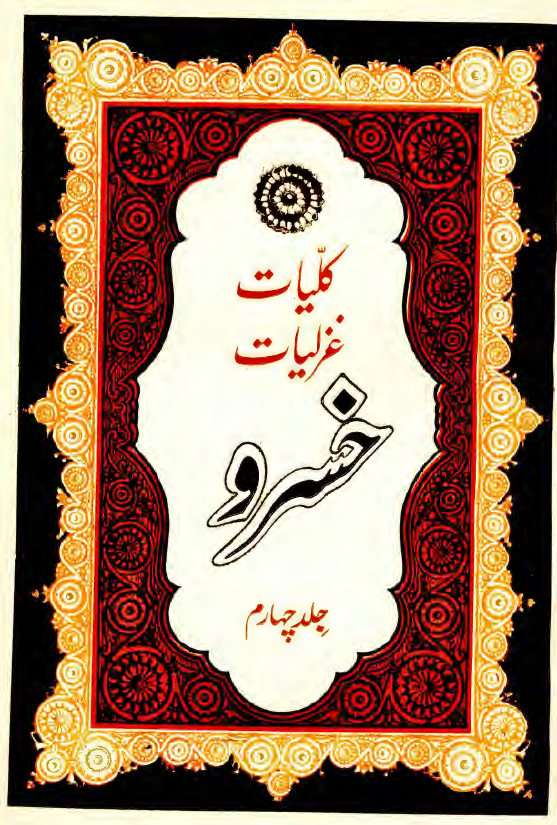 کلّیات
غزلیات
خسرو
جلد چہارم